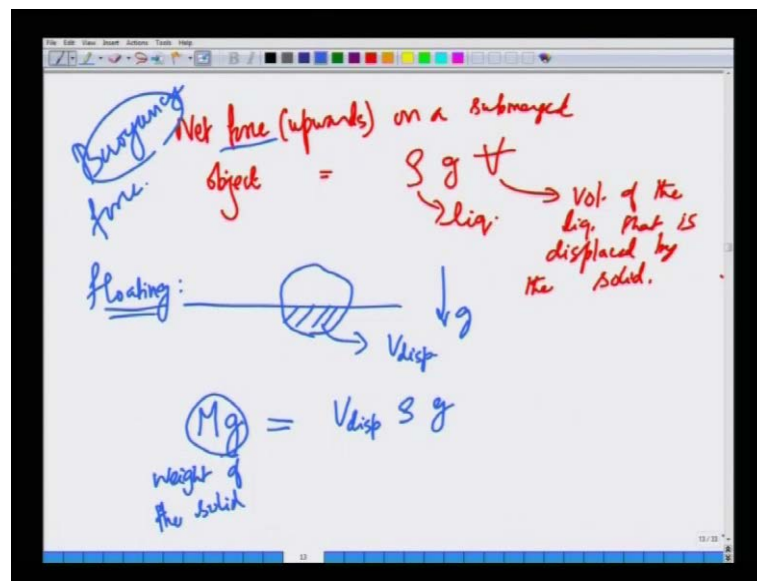 File Edit View Insert Actions Tools Help
Buoyancy force.
Net force (upwards) on a submerged
object = ρ g V
→ liq.
→ Vol. of the
liq. that is
displaced by
the solid.
floating:
g
Vdisp
Mg = Vdisp ρ g
weight of
the solid
13/33
13